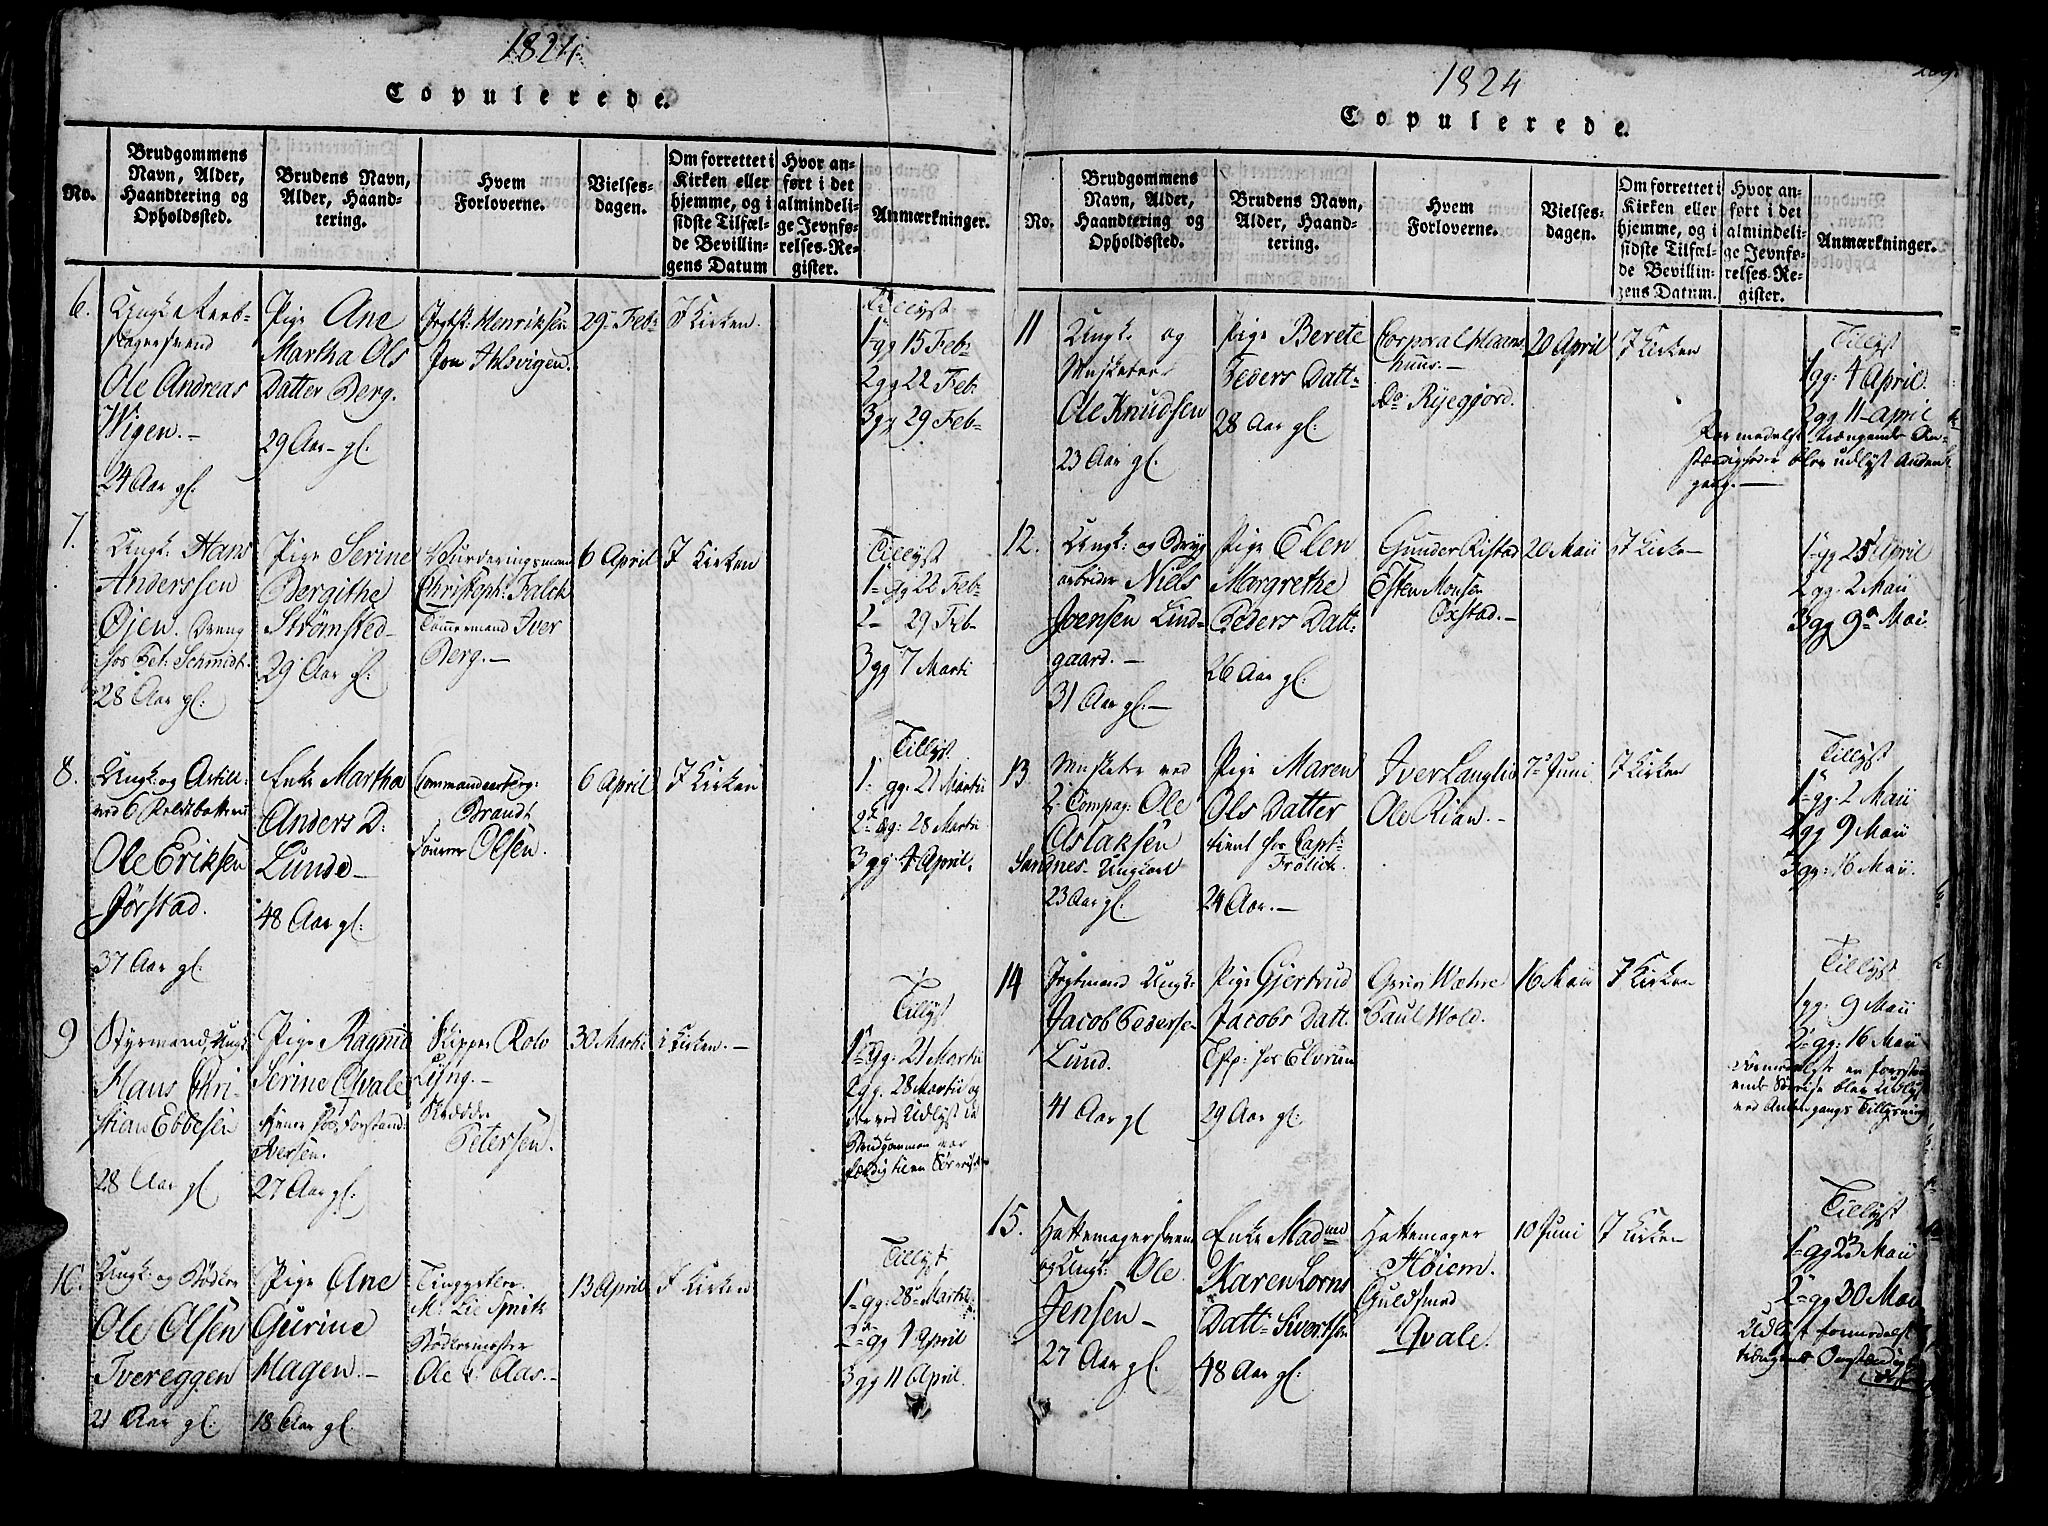 1824
Copulerede.
No.
Brudgommens Navn, Alder, Haandtering og Opholdssted.
Brudens Navn, Alder, Haandtering.
Hvem Forloverne.
Vielsesdagen.
Om forrettet i Kirken eller hjemme, og i sidste Tilfælde Bevillingens Datum
Hvor anført i det almindelige Jevnførelses-Register.
Anmærkninger.
6.
Ole Andreas
Wigen.-
24 Aar gl.
Pige Ane
Martha Ols
Datter Berg.
29 Aar- gl.
Henriksen
Jon
29 Feb:
I Kirken.
Tillyst
1 gg 15 Feb:
2 gg 22 Feb:
3 gg 29 Feb:
7.
Ungk: Hans
Anderssen
Øjen. Dreng
hos Schmidt.
28 Aar gl:
Pige Serine
Bergithe
Strømsted-
29 Aar gl:
Vurderingsmand
Christoph: Falck
Tømmermand Iver
Berg.-
6 April
I Kirken
Tillyst
1 gg 22 Feb:
2- 29 Feb-
3 gg 7 Marti
8.
Ungk: og Artill:
ved 6
Ole Eriksen
Jørstad.
37 Aar gl.
Enke Martha
Anders D:
Lunde-
48 Aar gl:
Brandt
Olsen.
6 April
I Kirken
Tillyst
1 gg: 21 Martii
2 gg: 28 Martii
3 gg 4 April.
9
Styrmand, Ungk:
Hans Chri-
stian Ebbesen
28 Aar gl
Pige Ragnid
Serine Qvale
Iversen.
27 Aar gl:
Skipper Rolv
Lysng.-
Petersen.
30 Martii
i Kirken.-
Tillyst
1 gg: 21 Martii
2 gg. 28 Martii og
Udlyst da
Brudgommen var
færdig til en Søereise
10.
Ungk: og Bødker
Ole Olsen
Tvereggen
21 Aar gl:
Pige Ane
Gurine
Hagen.-
18 Aar gl.
Bødkermester
Ole Aas-
13 April
I Kirken
Tillyst
1 gg: 28 Martii
2 gg 1 April
3 gg 11 April.
1824
Copulerede.
No.
Brudgommens Navn, Alder, Haandtering og Opholdssted.
Brudens Navn, Alder, Haandtering.
Hvem Forloverne.
Vielsesdagen.
Om forrettet i Kirken eller hjemme, og i sidste Tilfælde Bevillingens Datum.
Hvor anført i det almindelige Jevnførelses-Register.
Anmærkninger.
11
Ungk. og
Musketeer
Ole Knudsen
23 Aar gl.
Pige Berete
Peders Datt=
28 Aar gl.
Corporal
huus.-
Do Ryeggjord.
20 April
I Kirken
Tillyst
1 gg: 4 April.
2 gg 11 april
Formedelst trængende
blev udlyst Anden
gang.-
12.
Ungk: og Bryg
arbeider Niels
Joensen Lind=
gaard.-
31 Aar gl.-
Pige Elen
Margrethe
Peders Datt:
26 Aar gl.
Gunder Ristad
Esten Monsen
Oxstad.-
20 Maii
I Kirke-
1 gg 25 April
2 gg: 2 Maii
3 gg 9 Mai.
13
Musketr ved
2 Compag: Ole
Aslaksen
Sandnes- Ungkarl
23 Aar gl.
Pige Maren
Ols Datter
tient hos Capt:
Frølich.
24 Aar.-
Iver
Ole Rian.-
7 Juni
I Kirken
Tillyst
1 gg: 2 Maii
2 gg 9 Maii
3 gg: 16 Maii.
14
Ungk:
Jacob Peders-
Lund.
41 Aar gl
Pige Gjertrud
Jacobs Datt.
hos Elvrum
29 Aar gl:
Wæhre
Paul Wold.
16 Maii
I Kirken
Tillyst
1 gg: 9 Maii
2 gg: 16 Maii
Formedelst en
Søreise blev Udlyst
ved Anden gangs Tillysning
15.
Hattemagersvend
og Ungk: Ole
Jensen-
27 Aar gl.
Enke Madme
Karen Lorns
Datt= Sivertsen
48 Aar gl:
Hattemager
Høiem.
Guldsmed
Qvale.
10 Juni
I Kirken
Tillyst
1 gg 23 Maii
2 gg 30 Maii
Udlyst formedelst